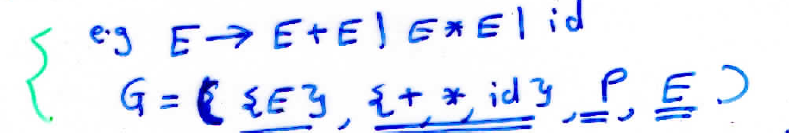 e.g E → E+E | E*E | id
G = ( {E}, {+, *, id}, P, E )